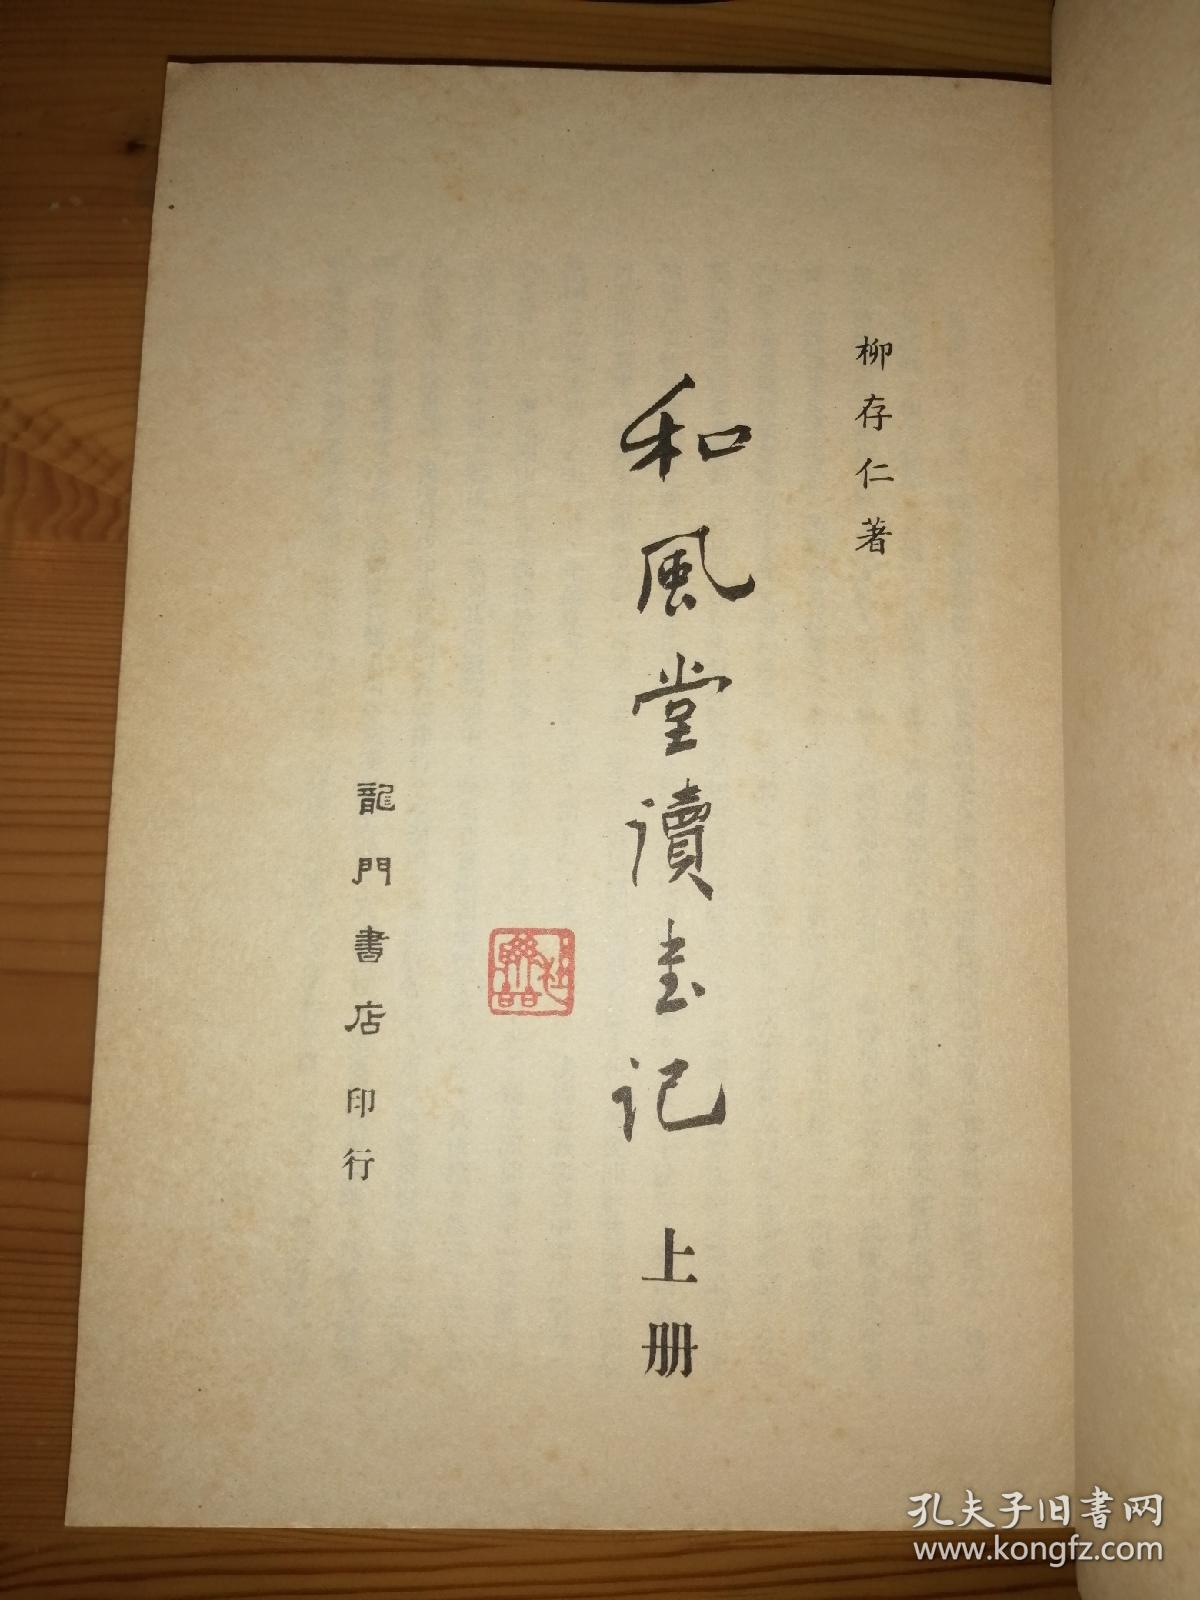 柳存仁著
和風堂讀書记
上册
龍門書店印行
孔夫子旧书网
www.kongfz.com